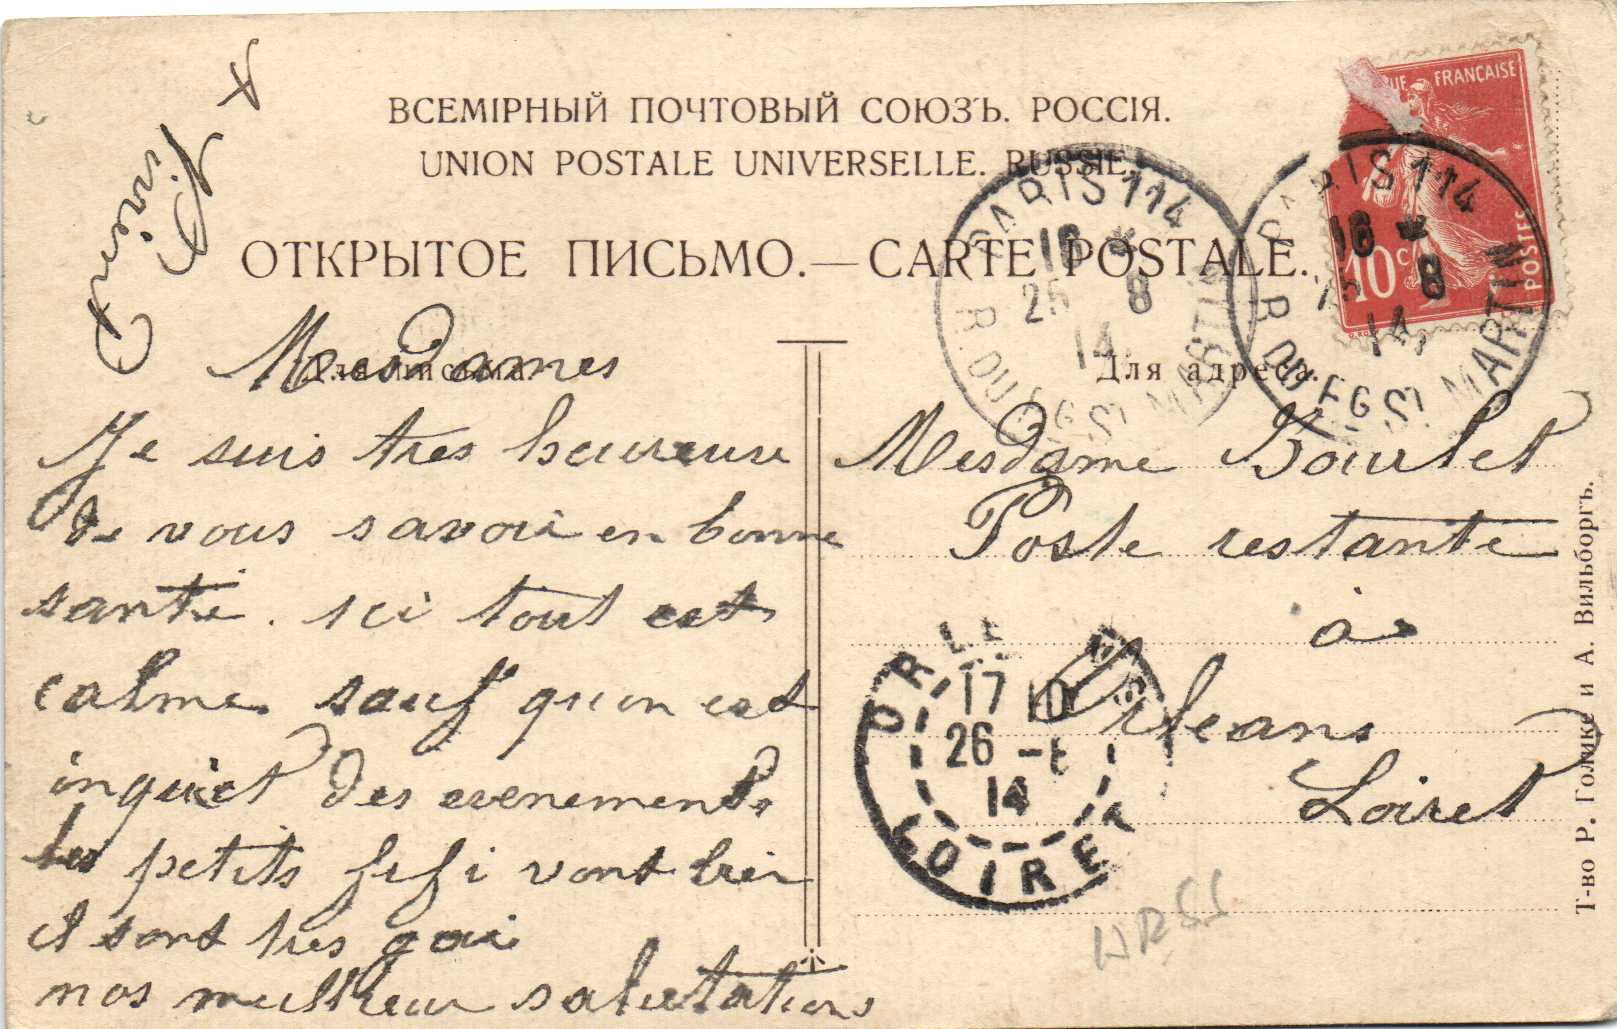 ВСЕМІРНЫЙ ПОЧТОВЫЙ СОЮЗЪ. РОССІЯ.
UNION POSTALE UNIVERSELLE. RUSSIE.
ОТКРЫТОЕ ПИСЬМО.—CARTE POSTALE.
Для письма.
Для адреса.
Mesdames
Je suis tres heureuse
de vous savoir en bonne
santé. ici tout est
calme sauf qu'on est
inquiet des evenements
les petits fifi vont bien
il sont tres gai
nos meilleur salutations
Mesdame Bourlet
Poste restante
à
Orléans
Loiret
UE FRANÇAISE
10c
POSTES
PARIS 114
16 * 
25 8
14
R. DU FG ST MARTIN
PARIS 114
16 *
25 8
14
R. DU FG ST MARTIN
ORLEANS
17 10
26 -8
14
LOIRET
URSS
Т-во Р. Голике и А. Вильборгъ.